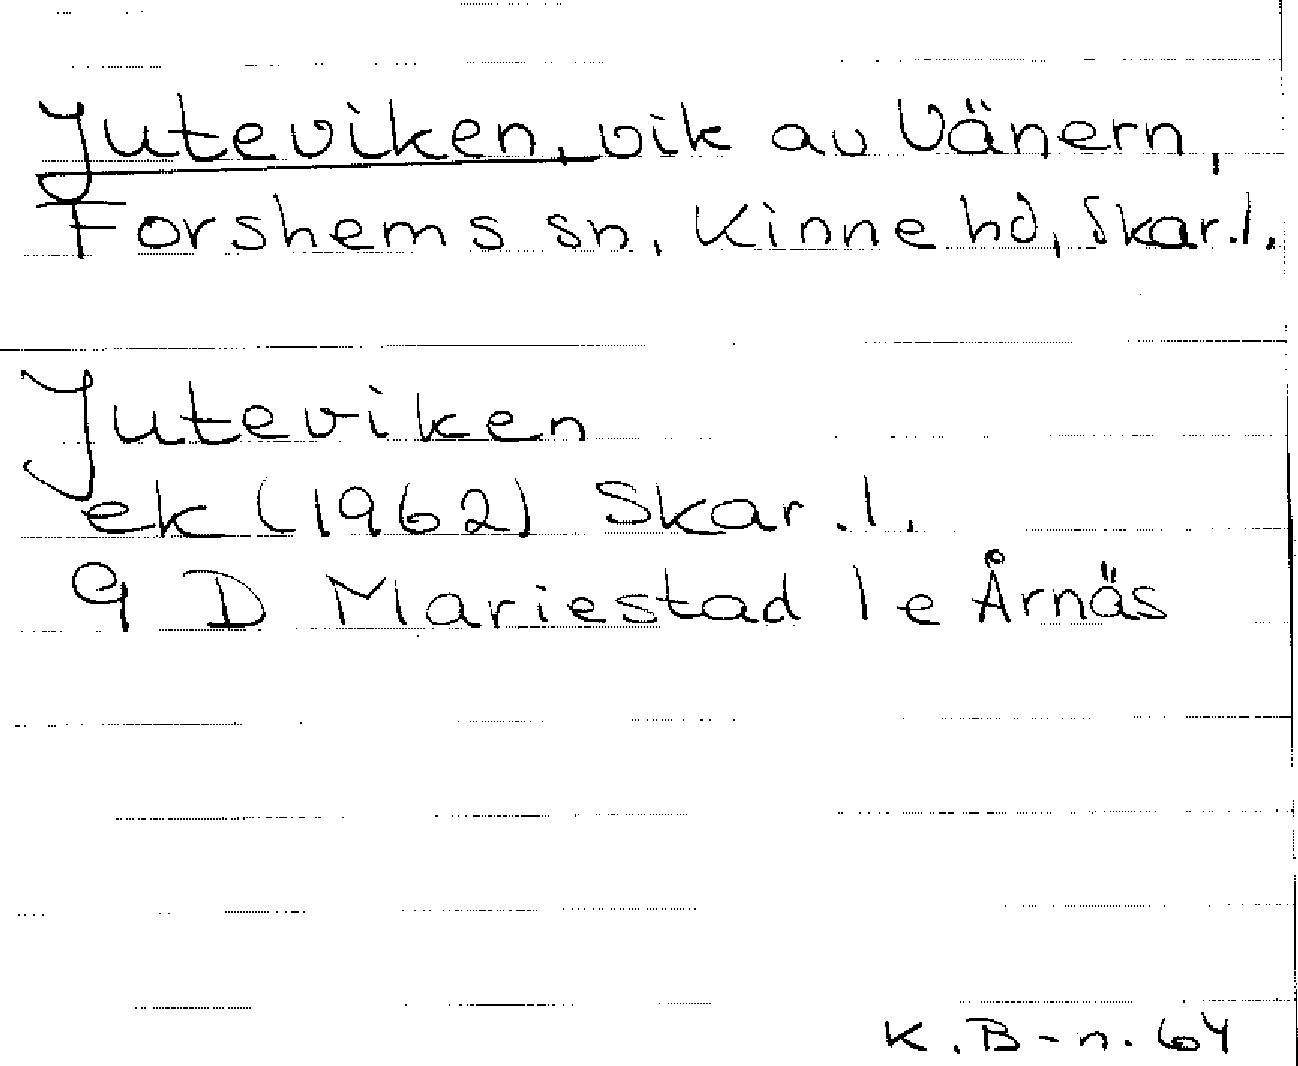 Juteviken, vik av Vänern,
Forshems sn, Kinne hd, Skar.l.
Juteviken
ek (1962) Skar.l.
9 D Mariestad 1e Årnäs
K.B-n. 64